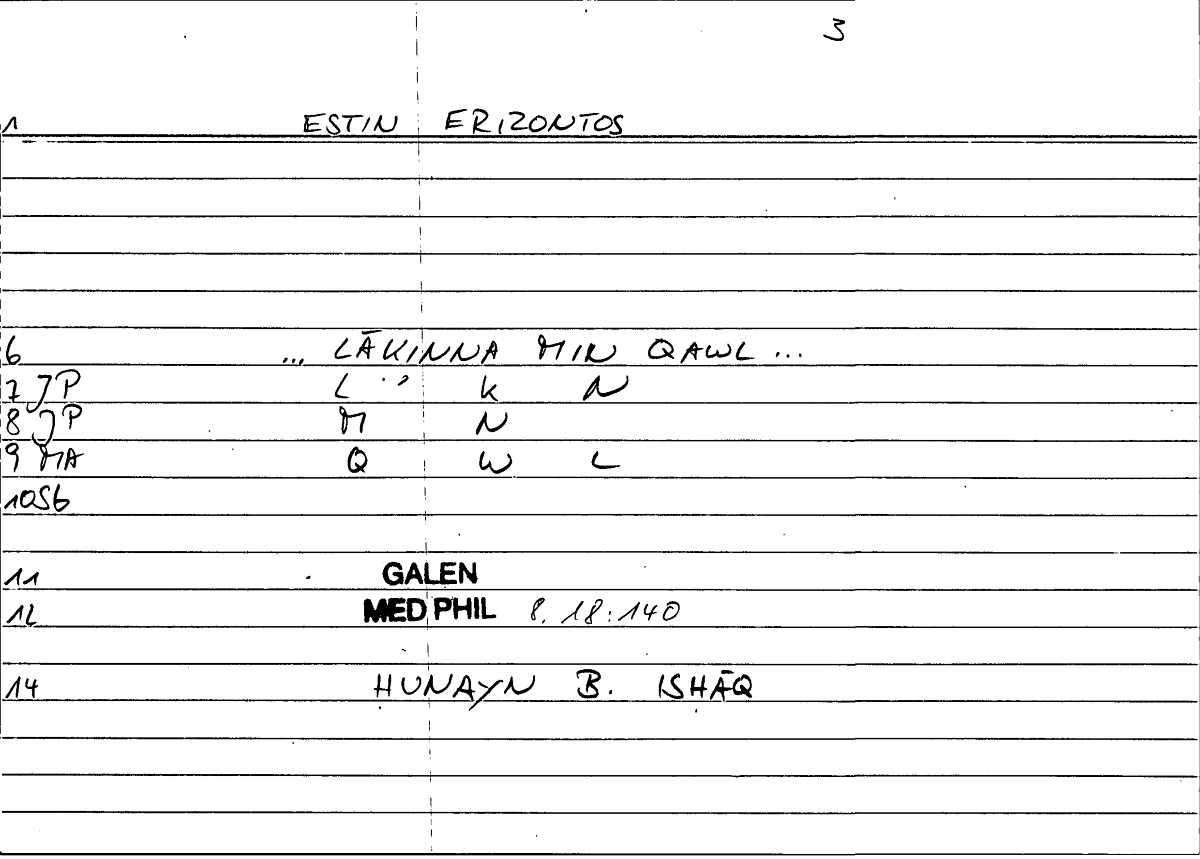 3
1 ESTIN ERIZONTOS
6 ... LĀKINNA MIN QAWL ...
7 JP L ʾ K N
8 JP M N
9 MA Q W L
10 Sb
11 GALEN
12 MED PHIL 8, 18:140
14 ḤUNAYN B. ISḤĀQ